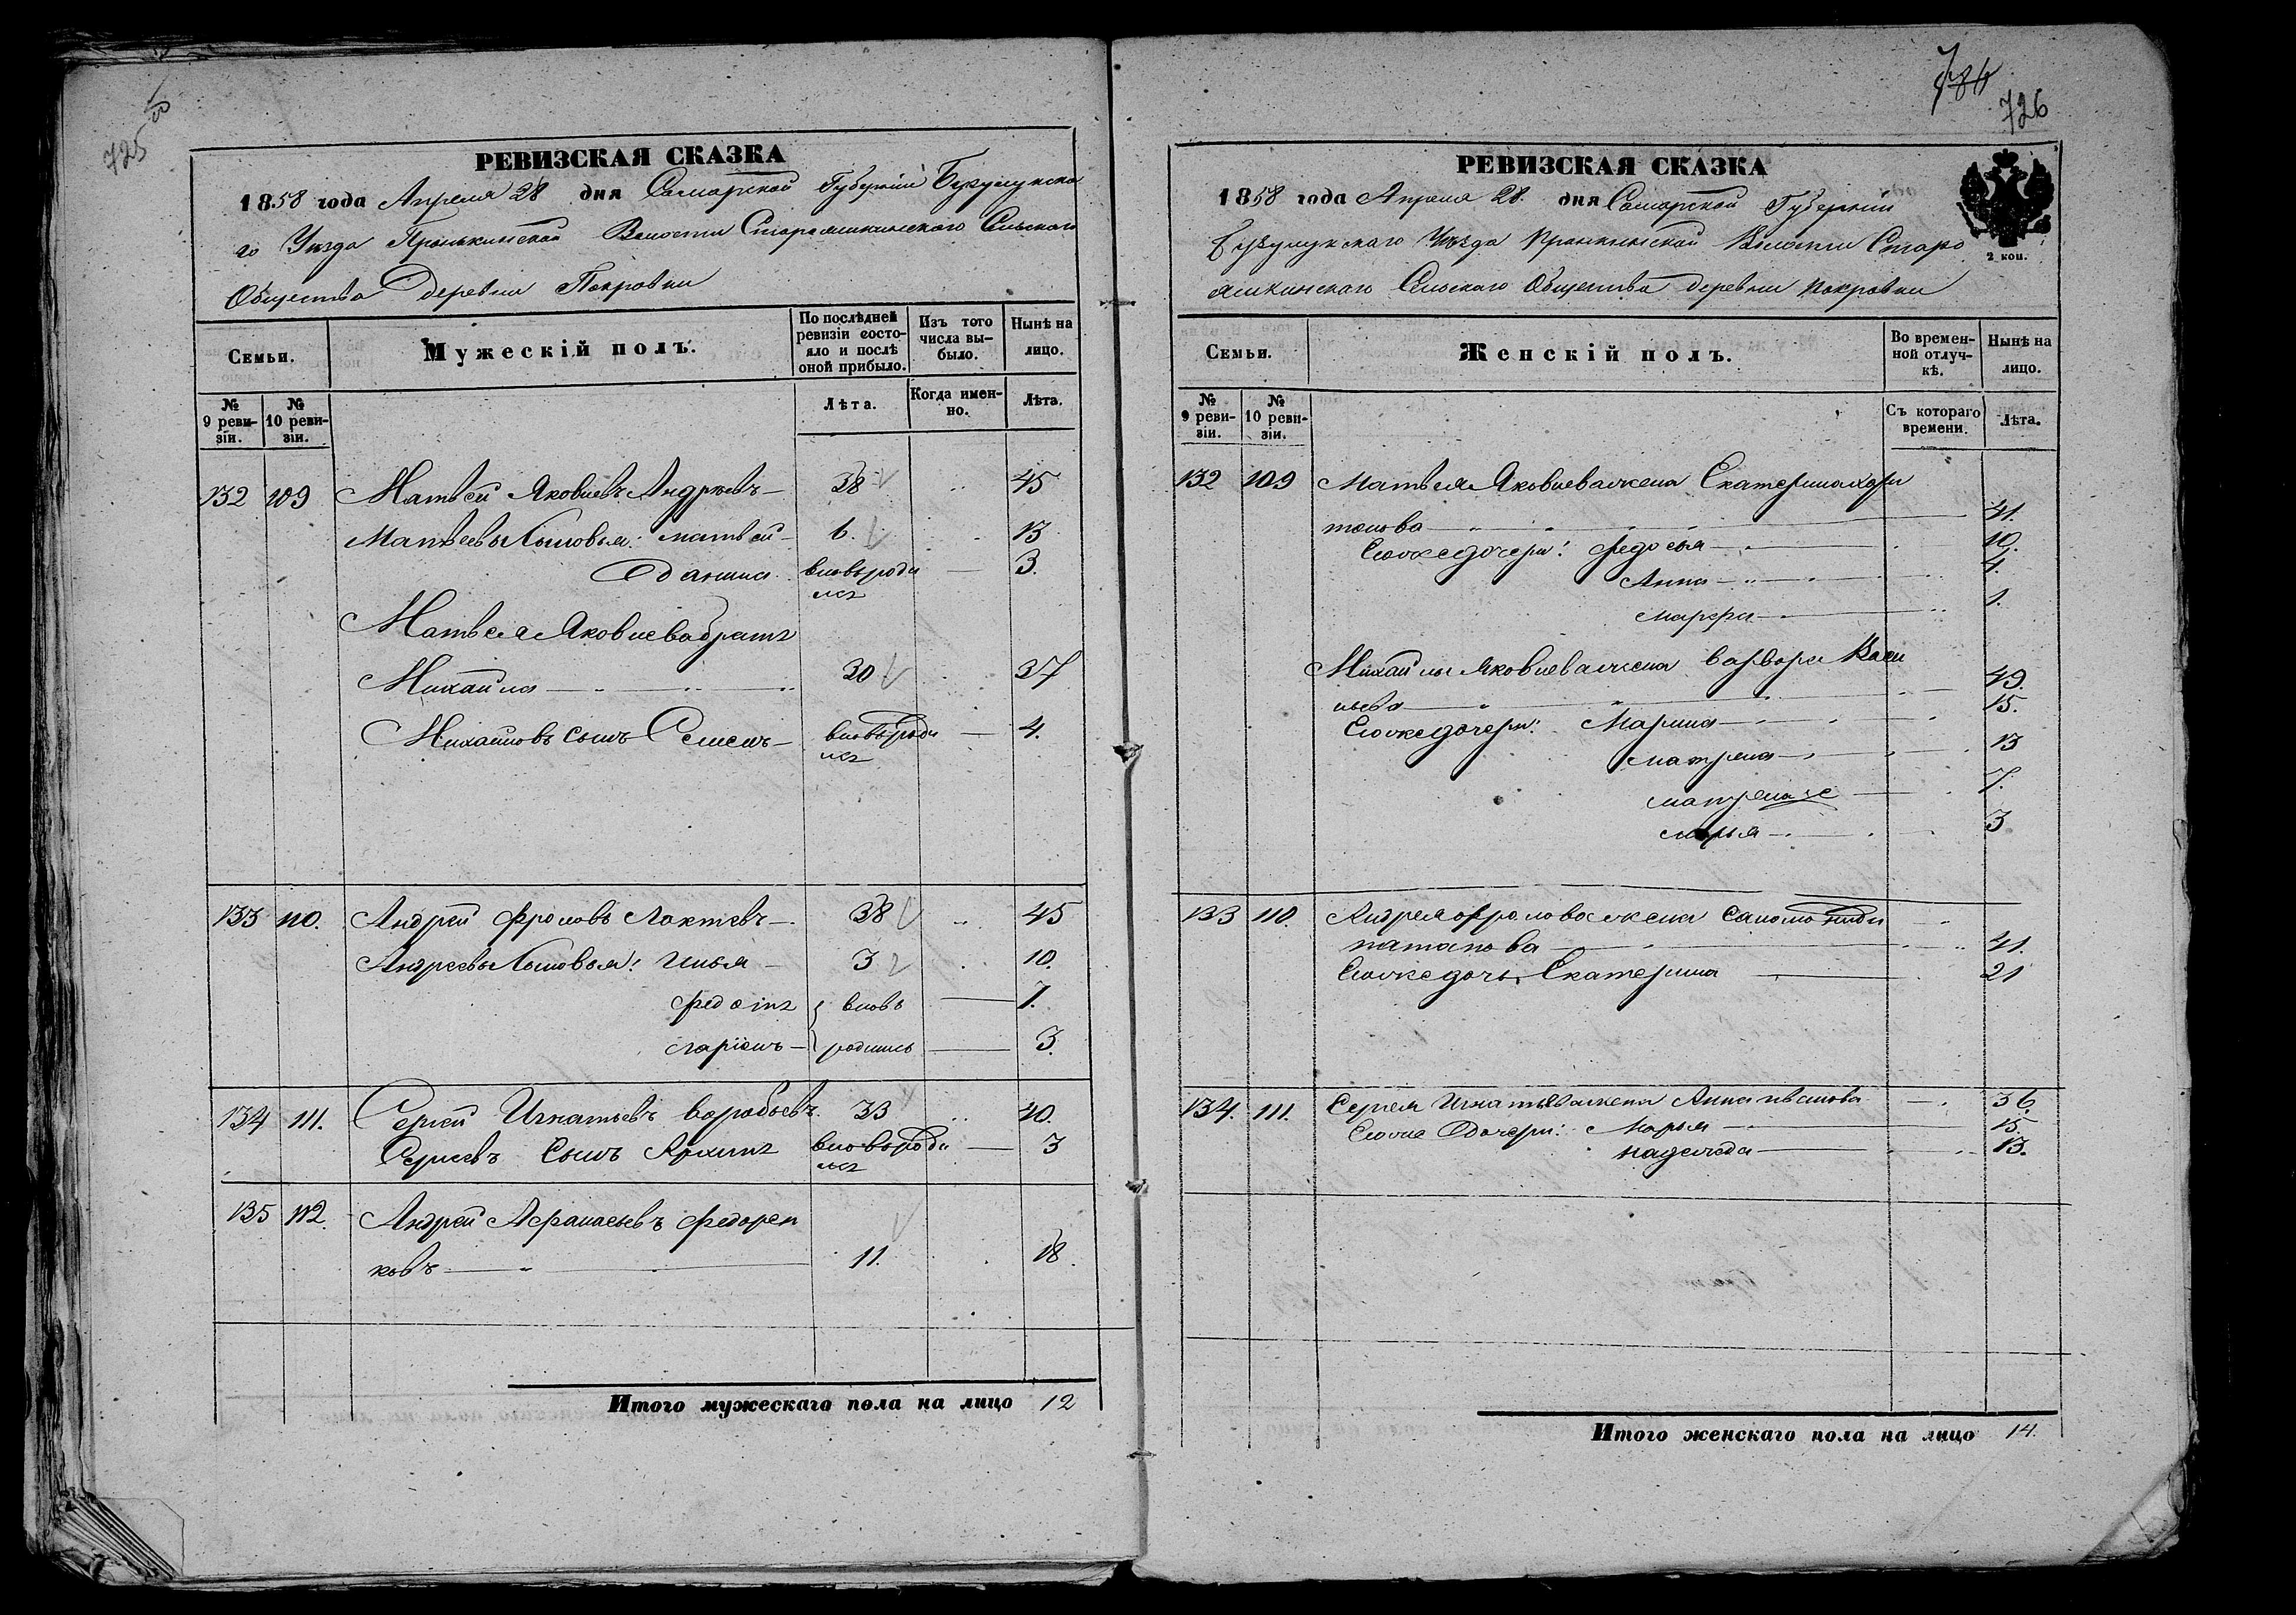 725
РЕВИЗСКАЯ СКАЗКА
1858 года Апреля 28 дня Самарской Губерніи Бузулукска
го Уѣзда Пронькинской Волости Староашкинскаго Сельскаго
Общества Деревни Покровки
Семьи.
Мужескій полъ.
По послѣдней ревизіи состояло и послѣ оной прибыло.
Изъ того числа выбыло.
Нынѣ на лицо.
№ 9 ревизіи.
№ 10 ревизіи.
Лѣта.
Когда именно.
Лѣта.
132 109 Матвей Яковлевъ Андреевъ 38 45
Матвеевы Сыновья: матвей 6. 13
Данила вновь роди 3.
лся
Матвея Яковлева братъ
Михайла 30 37
Михайловъ сынъ Семенъ вновь роди 4.
лся
133 110. Андрей Фроловъ Локтевъ 38 45
Андреевы Сыновья: Илья 3 10.
федотъ вновь 7.
ларіонъ родились 3.
134 111. Сергей Игнатьевъ Воробьевъ 33 40.
Сергеевъ Сынъ Архипъ вновь роди 3
лся
135 112. Андрей Афанасьевъ федорен
ковъ 11. 18.
Итого мужескаго пола на лицо 12
726
РЕВИЗСКАЯ СКАЗКА
1858 года Апреля 28. дня Самарской Губерніи
Бузулукскаго Уѣзда Пронькинской Волости Старо
ашкинскаго Сельскаго Общества деревни покровки
2 коп.
Семьи.
Женскій полъ.
Во временной отлучкѣ.
Нынѣ на лицо.
№ 9 ревизіи.
№ 10 ревизіи.
Съ котораго времени.
Лѣта.
132 109 Матвея Яковлева жена Екатерина хари
тонова 41.
Ево же дочери: Федосья 10.
Анна 4.
марфа 1.
Михайлы Яковлева жена варвара Васи
льева 49.
Ево же дочери: Марина 15.
матрена 13
матрена же 7.
марья 3
133 110. Андрея фролова жена Саломонида
патапова 41.
Ево же дочь Екатерина 21
134. 111. Сергея Игнатьева жена Анна иванова 36
Ево же Дочери: Марья 15.
надежда 13.
Итого женскаго пола на лицо 14.